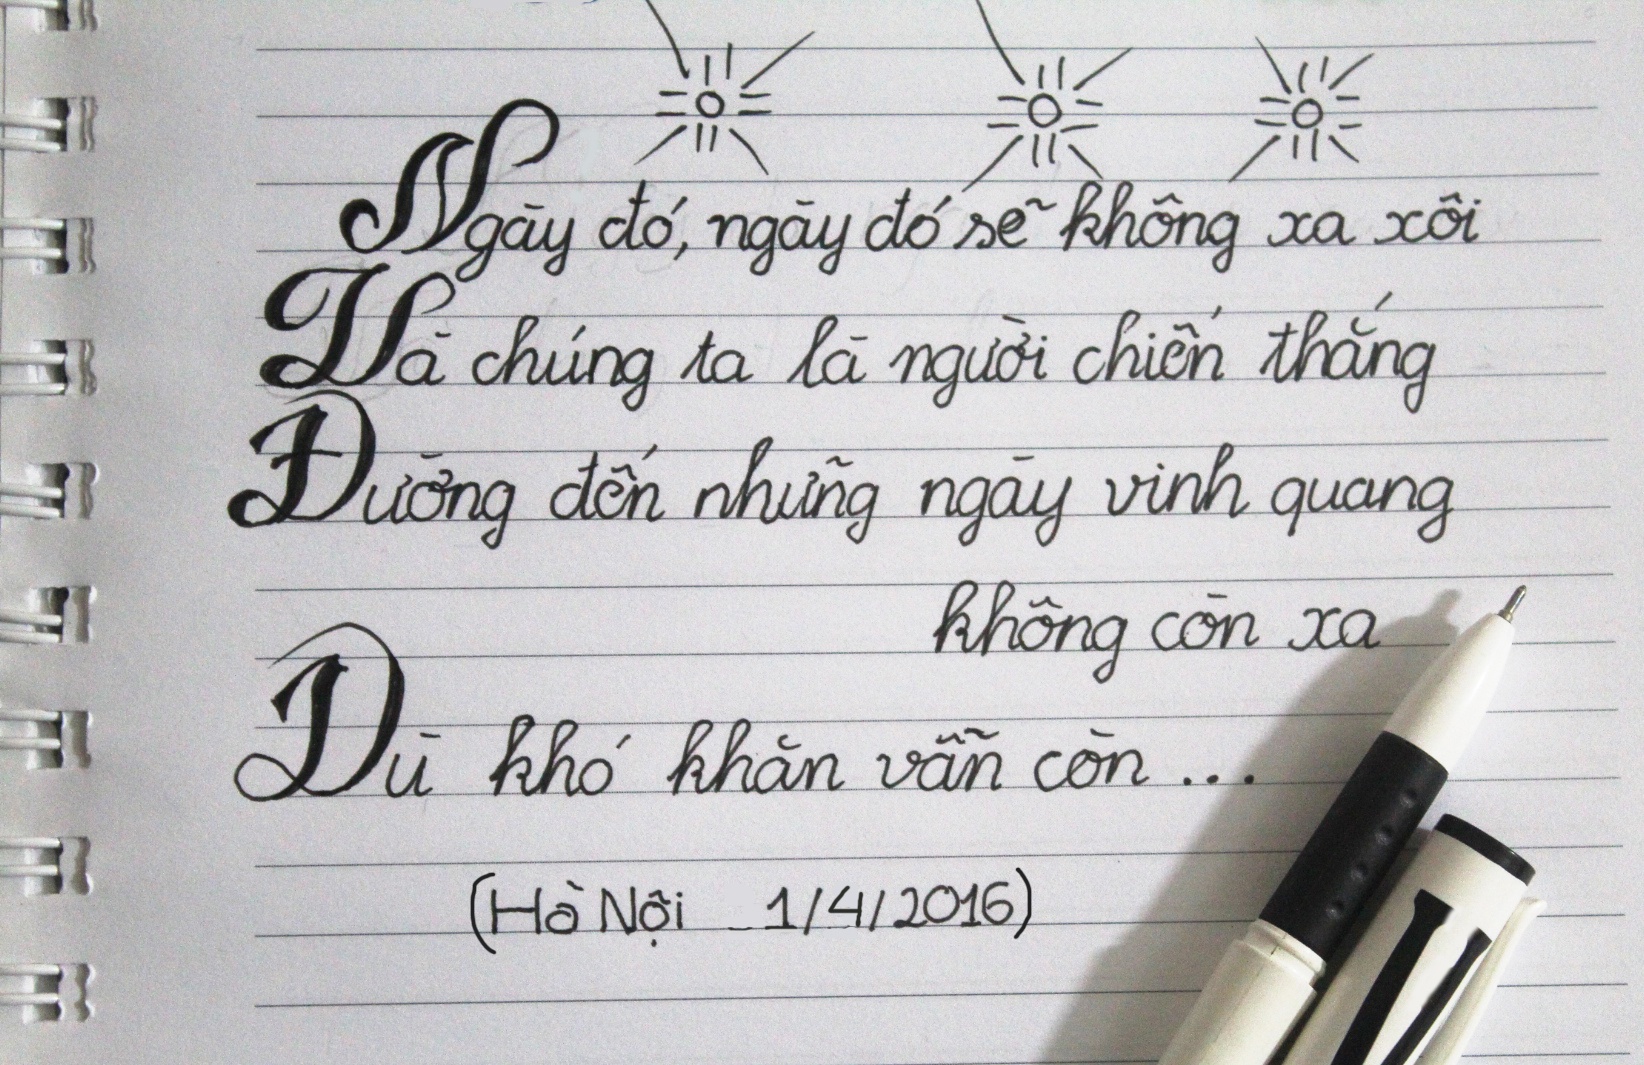 Ngày đó, ngày đó sẽ không xa xôi
Và chúng ta là người chiến thắng
Đường đến những ngày vinh quang
không còn xa
Dù khó khăn vẫn còn ...
(Hà Nội _ 1/4/2016)